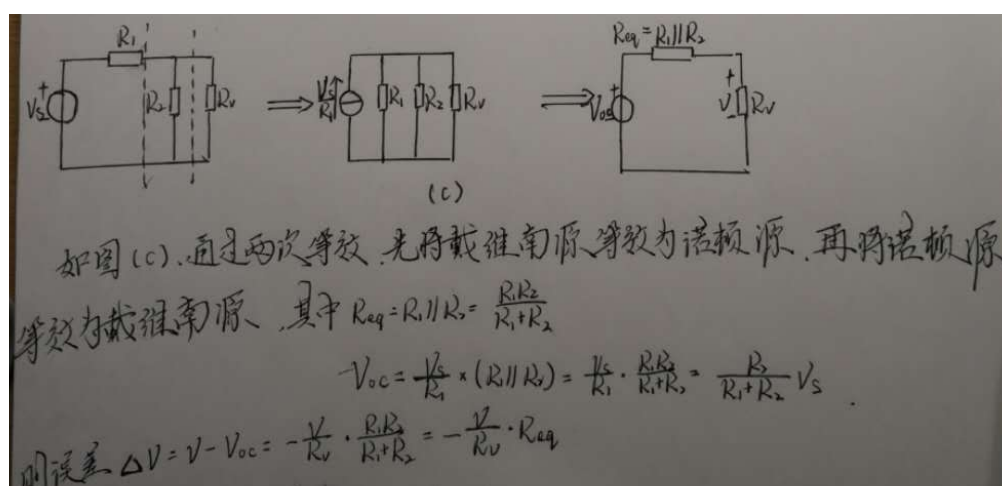 R₁ Req=R₁//R₂
+ Vs R₂ Rv ⟹ Vs/R₁ R₁ R₂ Rv ⟹ Vos + V - Rv
(C)
如图(C).通过两次等效.先将戴维南源等效为诺顿源.再将诺顿源
等效为戴维南源.其中 Req=R₁//R₂= R₁R₂/(R₁+R₂)
Voc= Vs/R₁ ×(R₁//R₂)= Vs/R₁ · R₁R₂/(R₁+R₂) = R₂/(R₁+R₂) Vs .
则误差 ΔV=V-Voc= -V/Rv · R₁R₂/(R₁+R₂) = -V/Rv · Req